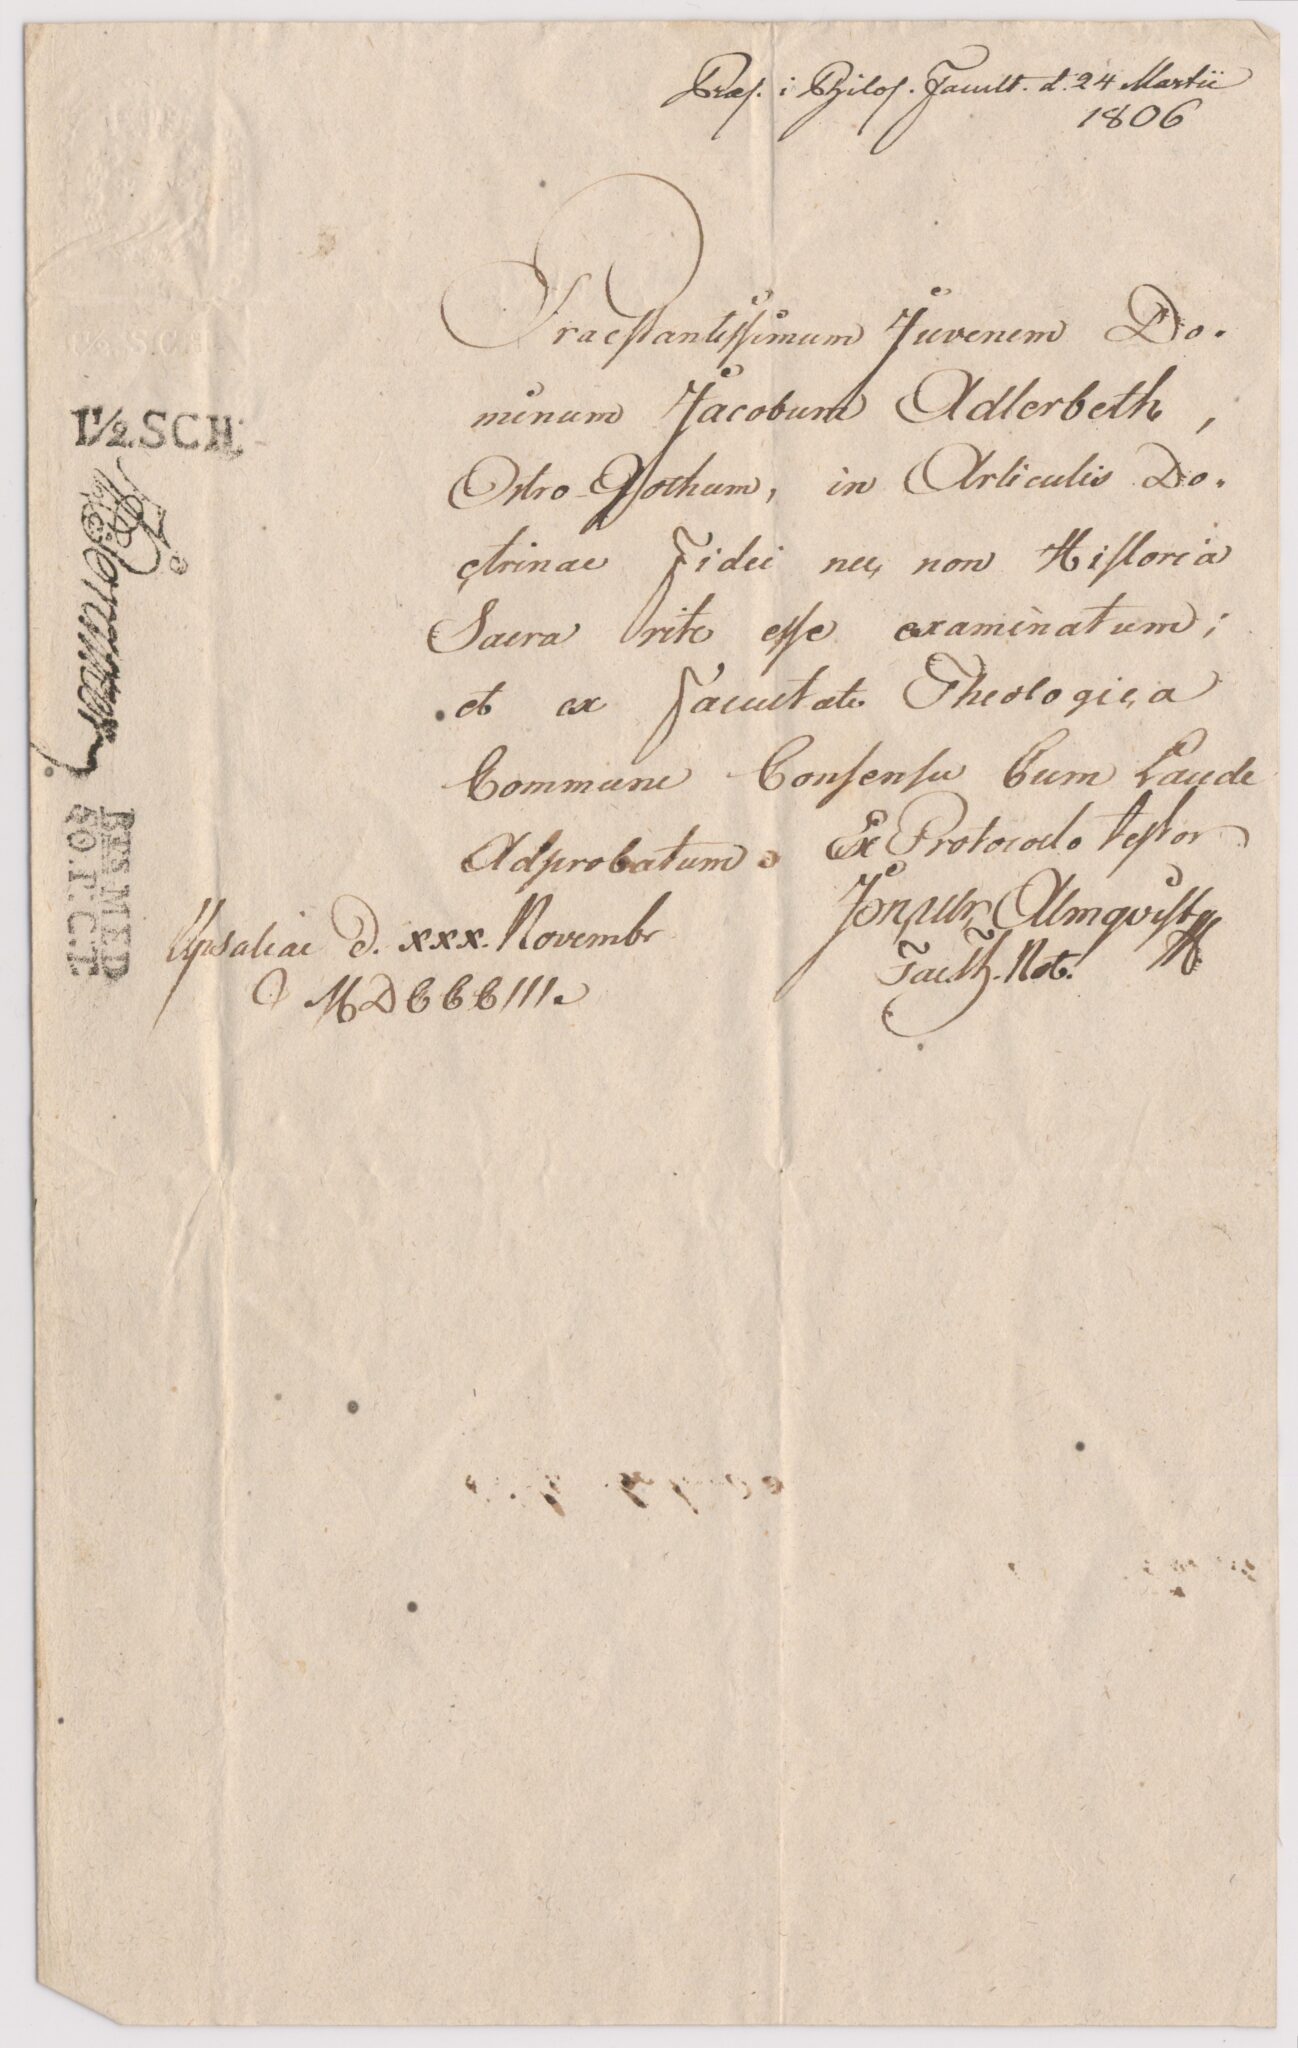 Præs. i Philos. Facult. d. 24 Martii
1806
Praestantissimum Juvenem Do-
minum Jacobum Adlerbeth,
Ostro-Gothum, in Articulis Do-
ctrinae Fidei nec non Historia
Sacra rite esse examinatum;
et ex Facultate Theologica
Communi Consensu Cum Laude
Adprobatum. Ex Protocollo testor
Upsaliae d. xxx. Novembr.
MDCCCIII.
Almqvist
Fac. Th. Not.
1½.SCH.